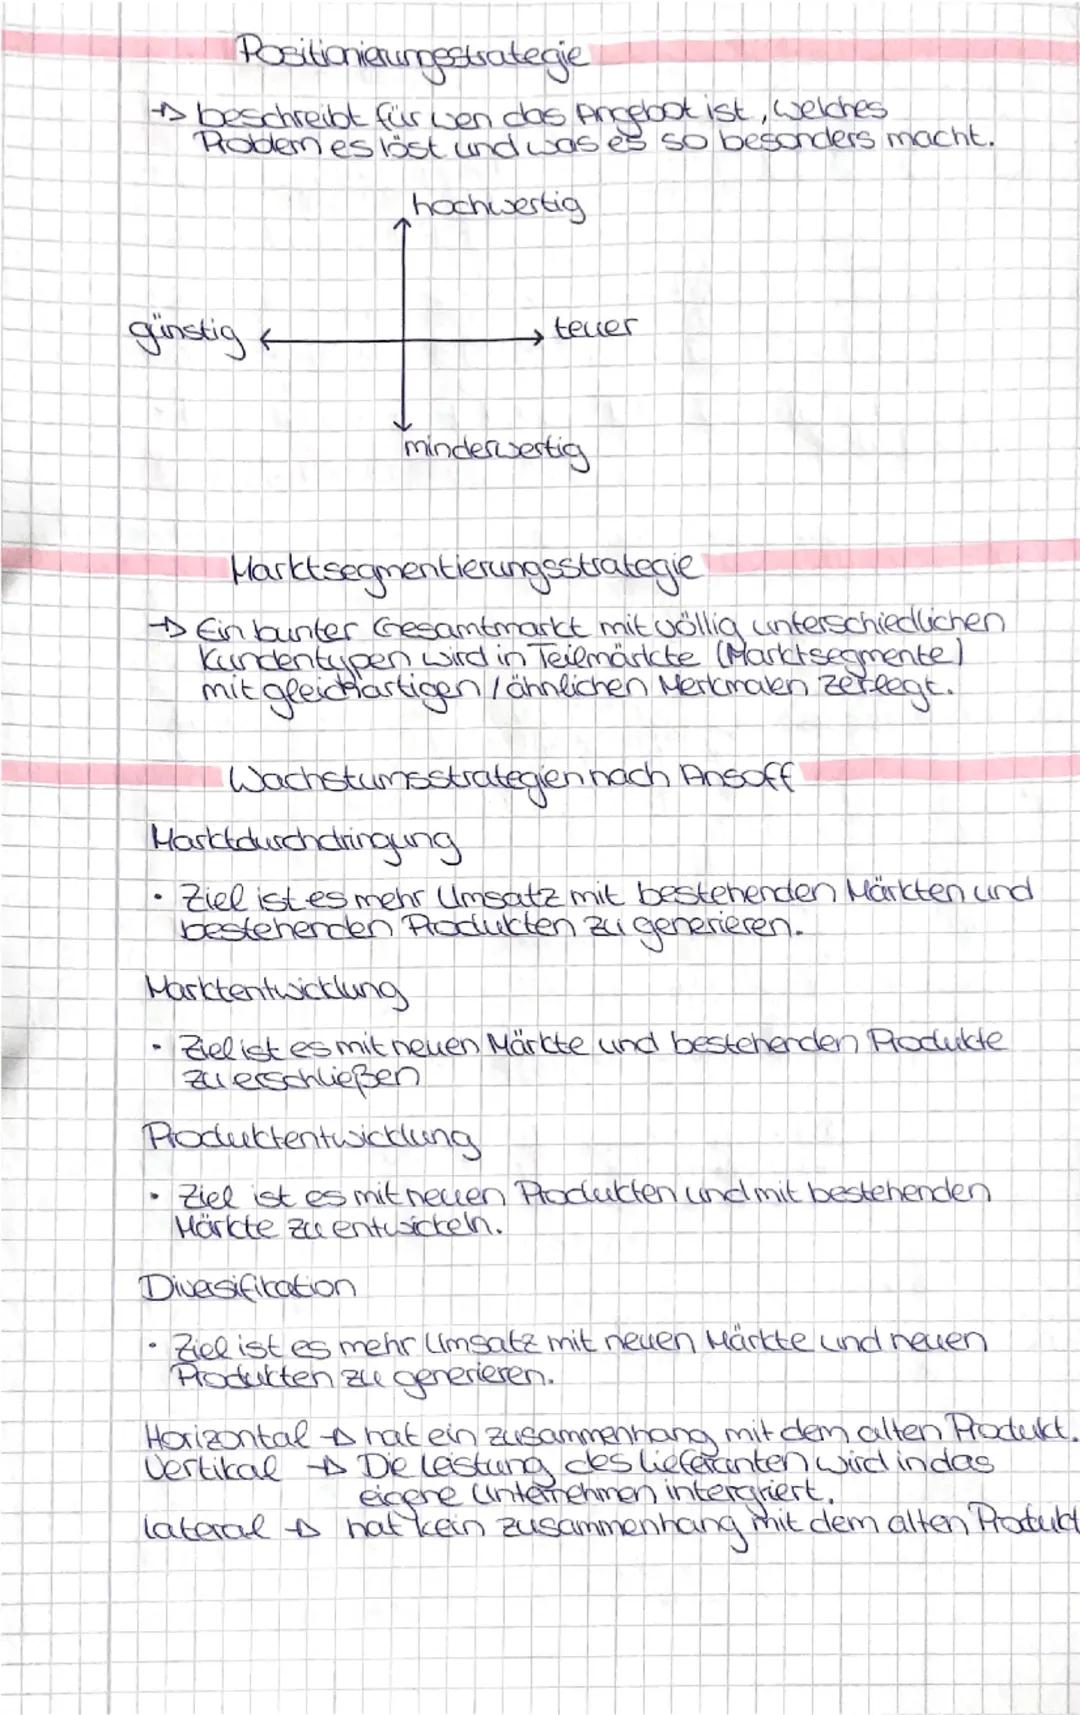 Positionierungsstrategie
→ beschreibt für wen das Angebot ist, welches
Problem es löst und was es so besonders macht.
hochwertig
günstig
teuer
minderwertig
Marktsegmentierungsstrategie
→ Ein bunter Gesamtmarkt mit völlig unterschiedlichen
Kundentypen wird in Teilmärkte (Marktsegmente)
mit gleichartigen / ähnlichen Merkmalen zerlegt.
Wachstumsstrategien nach Ansoff
Marktdurchdringung
• Ziel ist es mehr Umsatz mit bestehenden Märkten und
bestehenden Produkten zu generieren.
Marktentwicklung
• Ziel ist es mit neuen Märkte und bestehenden Produkte
zu erschließen
Produktentwicklung
• Ziel ist es mit neuen Produkten und mit bestehenden
Märkte zu entwickeln.
Diversifikation
• Ziel ist es mehr Umsatz mit neuen Märkte und neuen
Produkten zu generieren.
Horizontal → hat ein zusammenhang mit dem alten Produkt.
Vertikal → Die Leistung des Lieferanten wird in das
eigene Unternehmen intergriert.
Lateral → hat kein zusammenhang mit dem alten Produkt